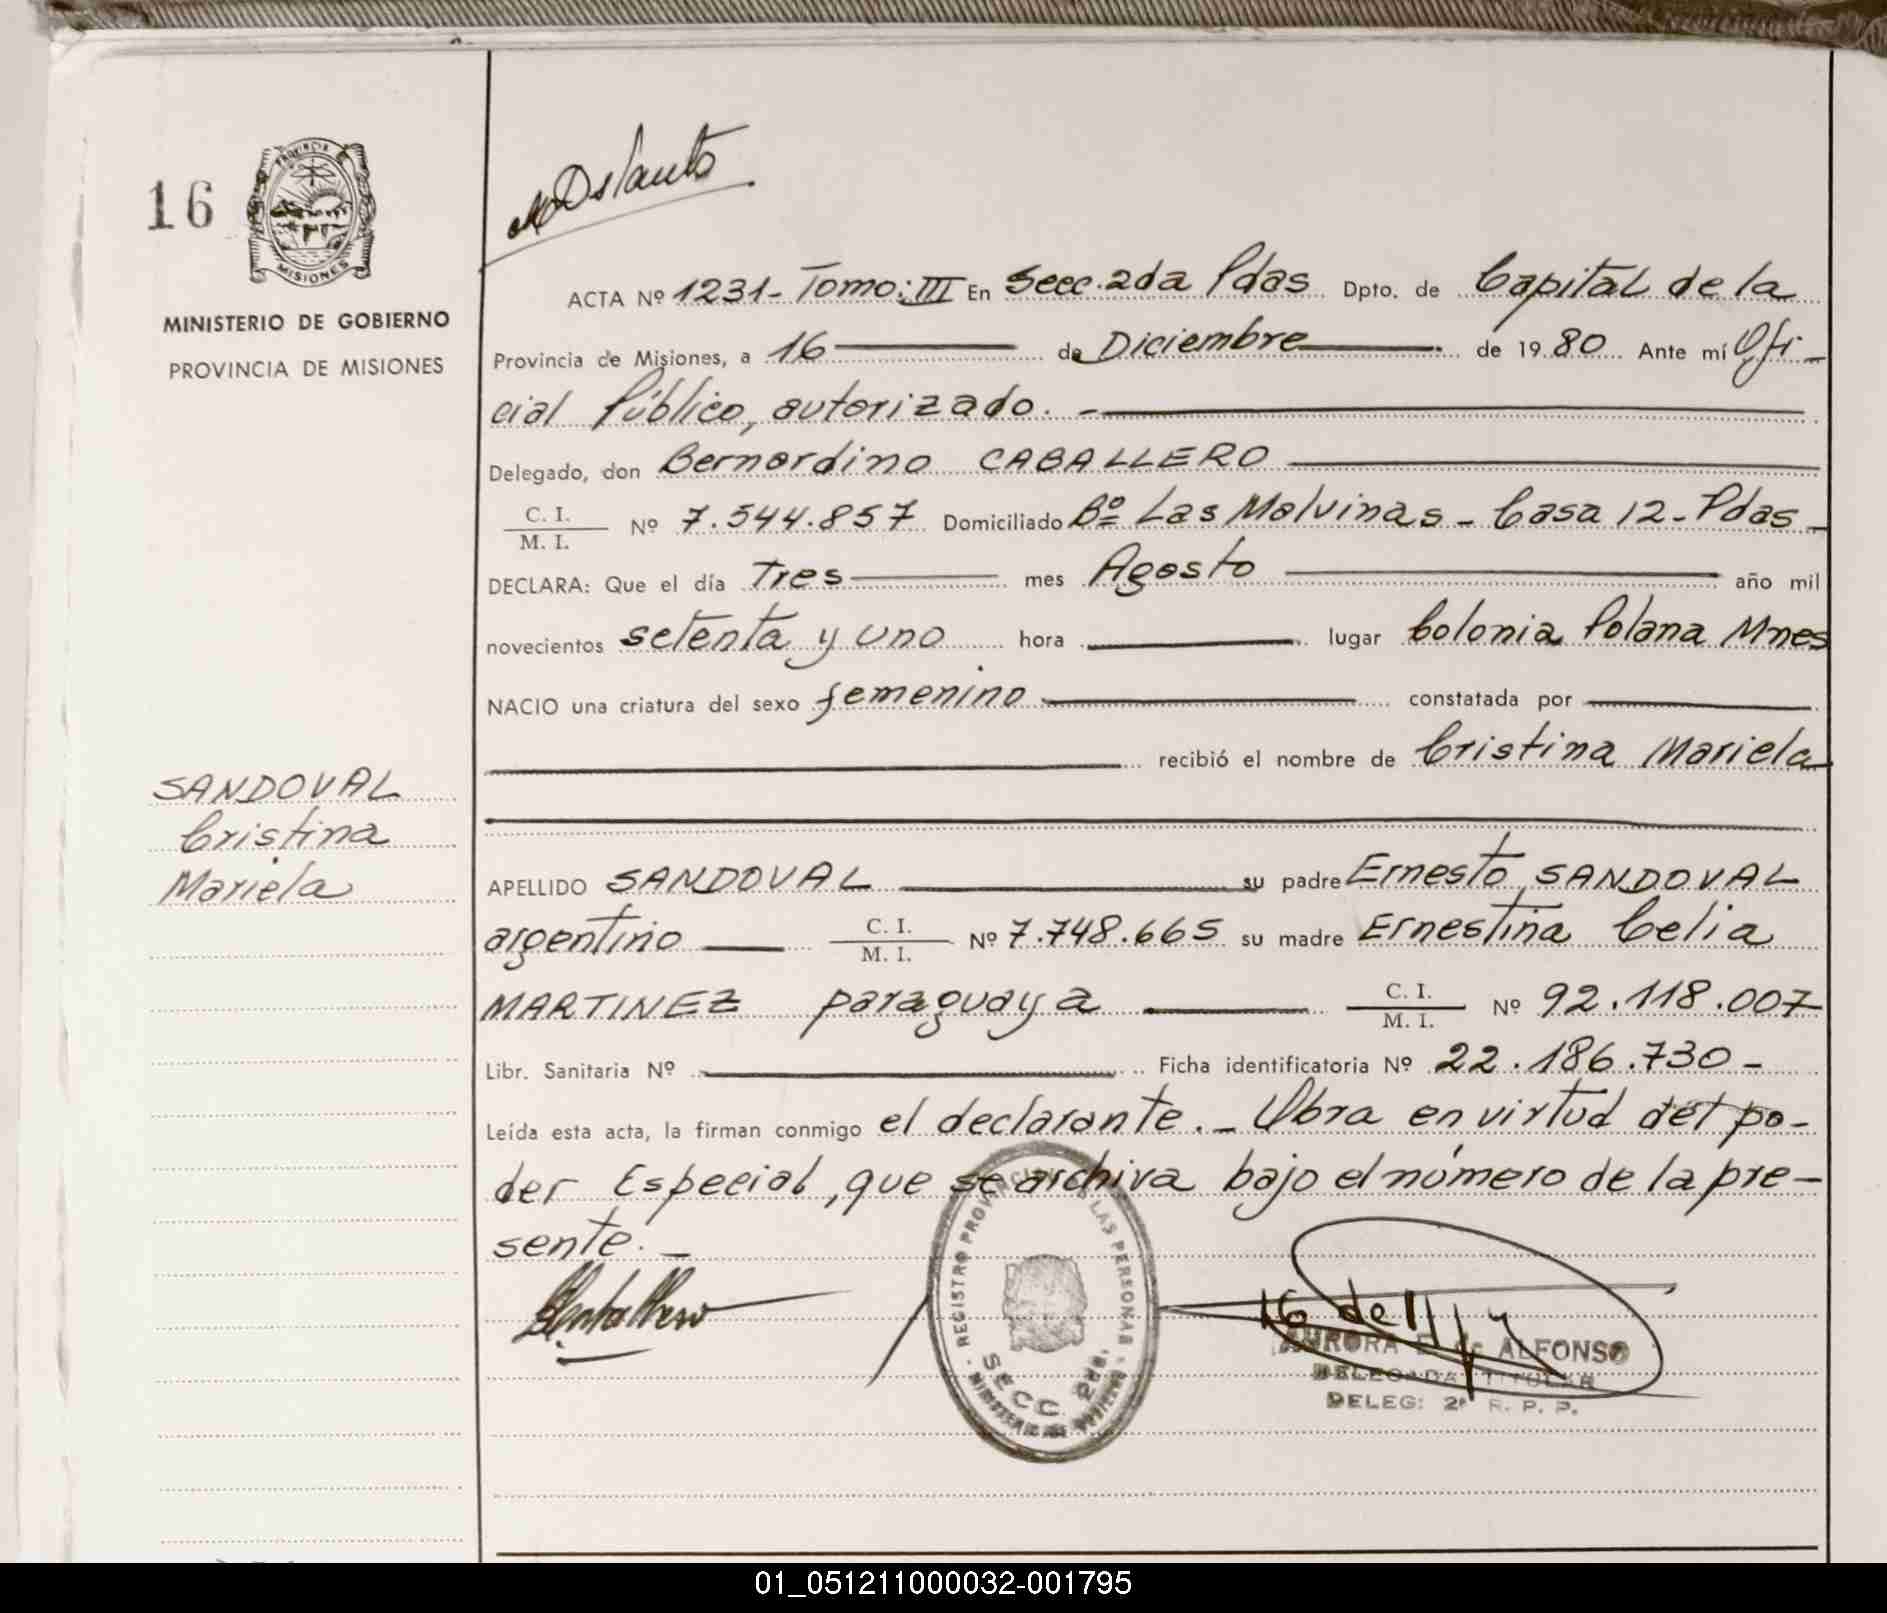 16
PROVINCIA
MISIONES
MINISTERIO DE GOBIERNO
PROVINCIA DE MISIONES
SANDOVAL
Cristina
Mariela
ACTA Nº 1231- Tomo: III En Secc. 2da Pdas Dpto. de Capital de la
Provincia de Misiones, a 16 de Diciembre de 1980 Ante mí Ofi-
cial Público, autorizado. -
Delegado, don Bernardino CABALLERO
C. I.
M. I. Nº 7.544.857 Domiciliado Bº Las Malvinas - Casa 12 - Pdas -
DECLARA: Que el día Tres mes Agosto año mil
novecientos setenta y uno hora lugar Colonia Polana Mnes
NACIO una criatura del sexo femenino constatada por
recibió el nombre de Cristina Mariela
APELLIDO SANDOVAL su padre Ernesto SANDOVAL
argentino C. I.
M. I. Nº 7.748.665 su madre Ernestina Celia
MARTINEZ paraguaya C. I.
M. I. Nº 92.118.007
Libr. Sanitaria Nº Ficha identificatoria Nº 22.186.730 -
Leída esta acta, la firman conmigo el declarante. - Obra en virtud del po-
der Especial, que se archiva bajo el número de la pre-
sente. -
REGISTRO PROVINCIAL LAS PERSONAS
SECC. 2da.
MINISTERIO DE GOBIERNO
AURORA E. de ALFONSO
DELEGADA TITULAR
DELEG: 2ª R. P. P.
01_051211000032-001795